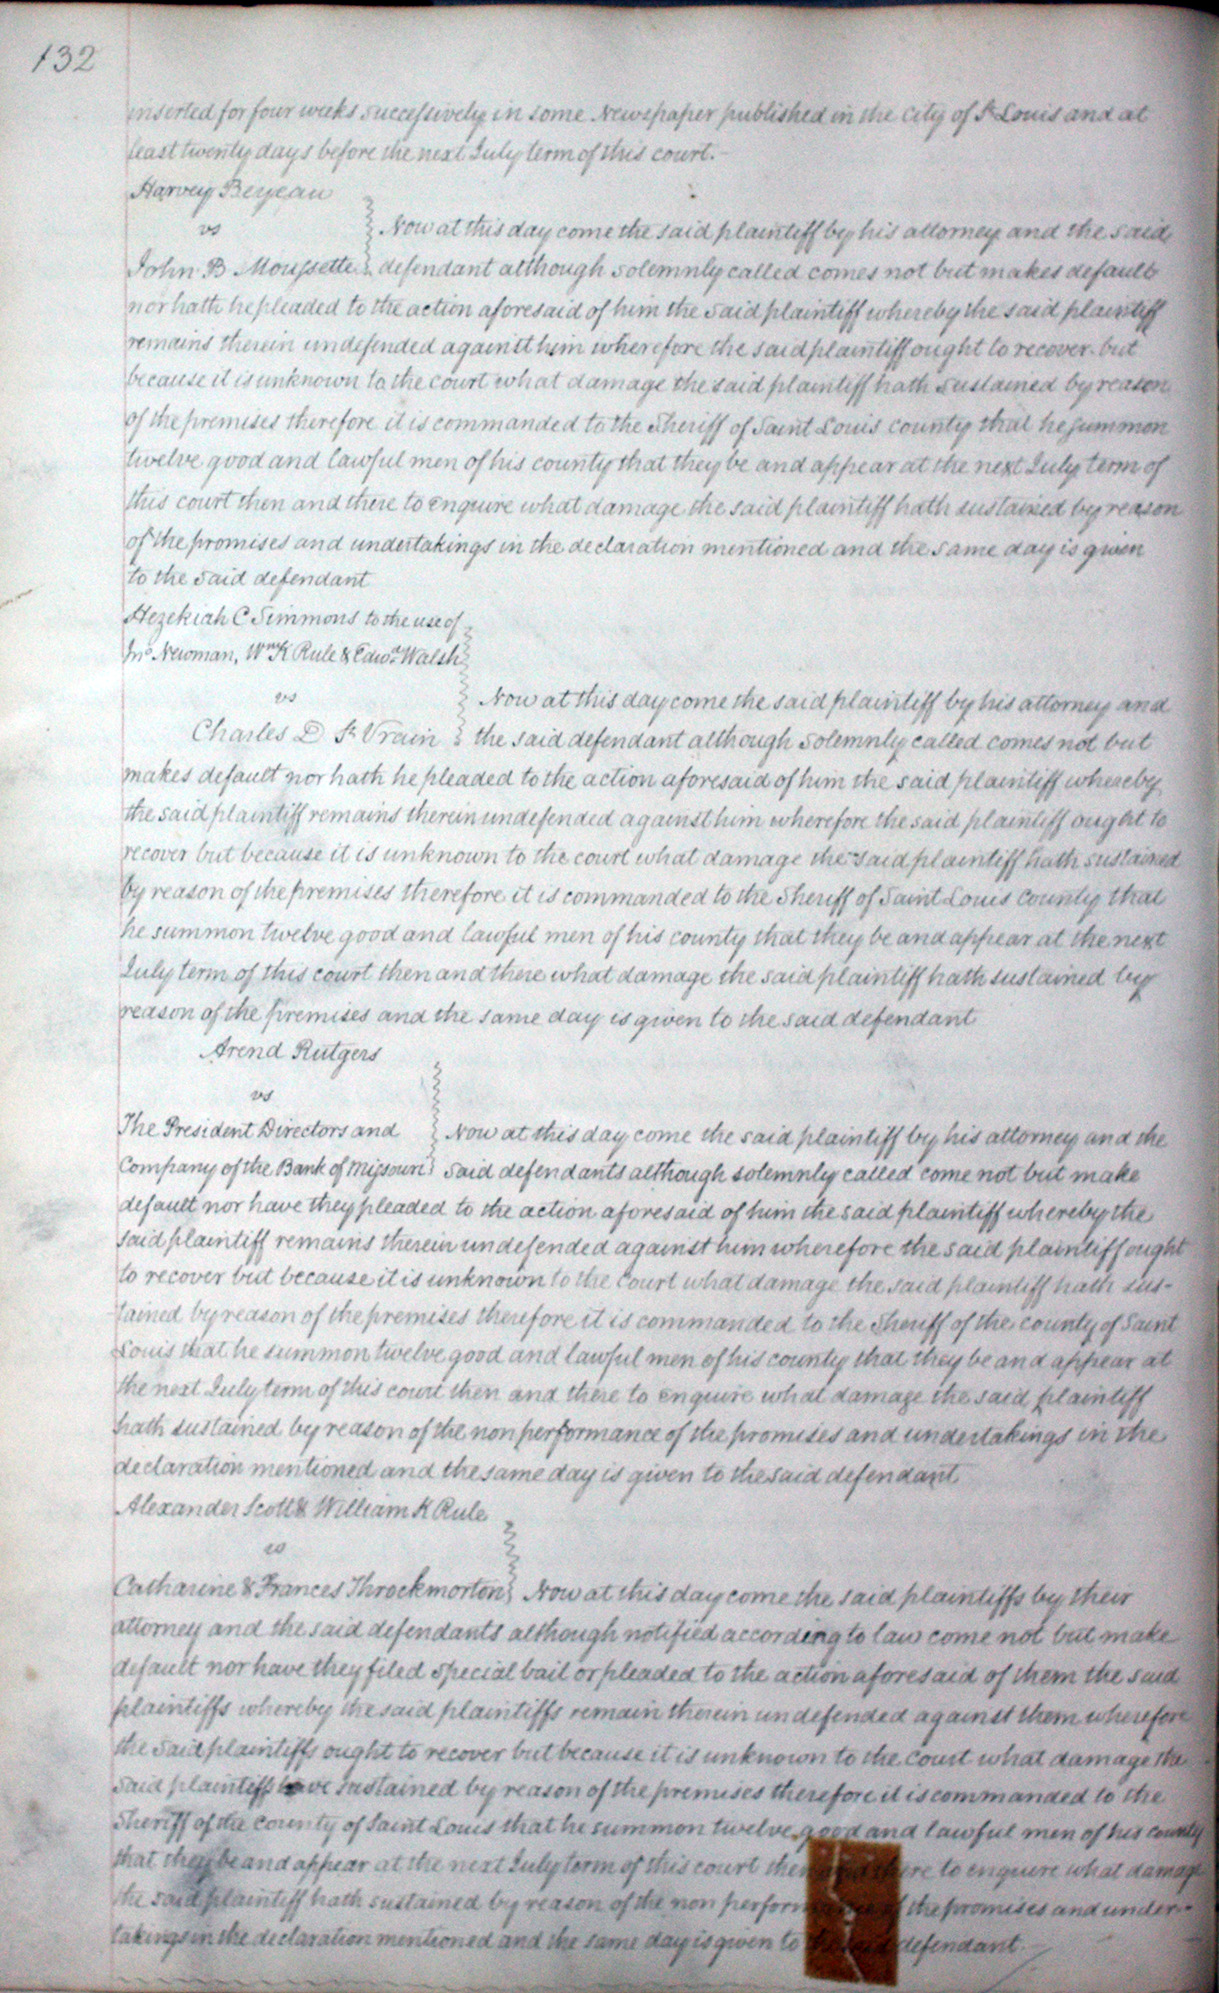 132
inserted for four weeks successively in some Newspaper published in the city of St Louis and at
least twenty days before the next July term of this court.-
Harvey Beyeau
vs
Now at this day come the said plaintiff by his attorney and the said
John B Moussette defendant although solemnly called comes not but makes default
nor hath he pleaded to the action aforesaid of him the said plaintiff whereby the said plaintiff
remains therein undefended against him wherefore the said plaintiff ought to recover but
because it is unknown to the court what damage the said plaintiff hath sustained by reason
of the premises therefore it is commanded to the Sheriff of Saint Louis county that he summon
twelve good and lawful men of his county that they be and appear at the next July term of
this court then and there to enquire what damage the said plaintiff hath sustained by reason
of the promises and undertakings in the declaration mentioned and the same day is given
to the said defendant
Hezekiah C Simmons to the use of
Jno Newman, Wm K Rule & Edwd Walsh
vs
Now at this day come the said plaintiff by his attorney and
Charles D St Vrain the said defendant although solemnly called comes not but
makes default nor hath he pleaded to the action aforesaid of him the said plaintiff whereby
the said plaintiff remains therein undefended against him wherefore the said plaintiff ought to
recover but because it is unknown to the court what damage the said plaintiff hath sustained
by reason of the premises therefore it is commanded to the Sheriff of Saint Louis county that
he summon twelve good and lawful men of his county that they be and appear at the next
July term of this court then and there what damage the said plaintiff hath sustained by
reason of the premises and the same day is given to the said defendant
Arend Rutgers
vs
The President Directors and Now at this day come the said plaintiff by his attorney and the
Company of the Bank of Missouri said defendants although solemnly called come not but make
default nor have they pleaded to the action aforesaid of him the said plaintiff whereby the
said plaintiff remains therein undefended against him wherefore the said plaintiff ought
to recover but because it is unknown to the court what damage the said plaintiff hath sus-
tained by reason of the premises therefore it is commanded to the Sheriff of the county of Saint
Louis that he summon twelve good and lawful men of his county that they be and appear at
the next July term of this court then and there to enquire what damage the said plaintiff
hath sustained by reason of the non performance of the promises and undertakings in the
declaration mentioned and the same day is given to the said defendant
Alexander Scott & William K Rule
vs
Catharine & Frances Throckmorton Now at this day come the said plaintiffs by their
attorney and the said defendants although notified according to law come not but make
default nor have they filed special bail or pleaded to the action aforesaid of them the said
plaintiffs whereby the said plaintiffs remain therein undefended against them wherefore
the said plaintiffs ought to recover but because it is unknown to the court what damage the
said plaintiffs have sustained by reason of the premises therefore it is commanded to the
Sheriff of the county of Saint Louis that he summon twelve good and lawful men of his county
that they be and appear at the next July term of this court then and there to enquire what damage
the said plaintiff hath sustained by reason of the non performance of the promises and under-
takings in the declaration mentioned and the same day is given to the said defendant